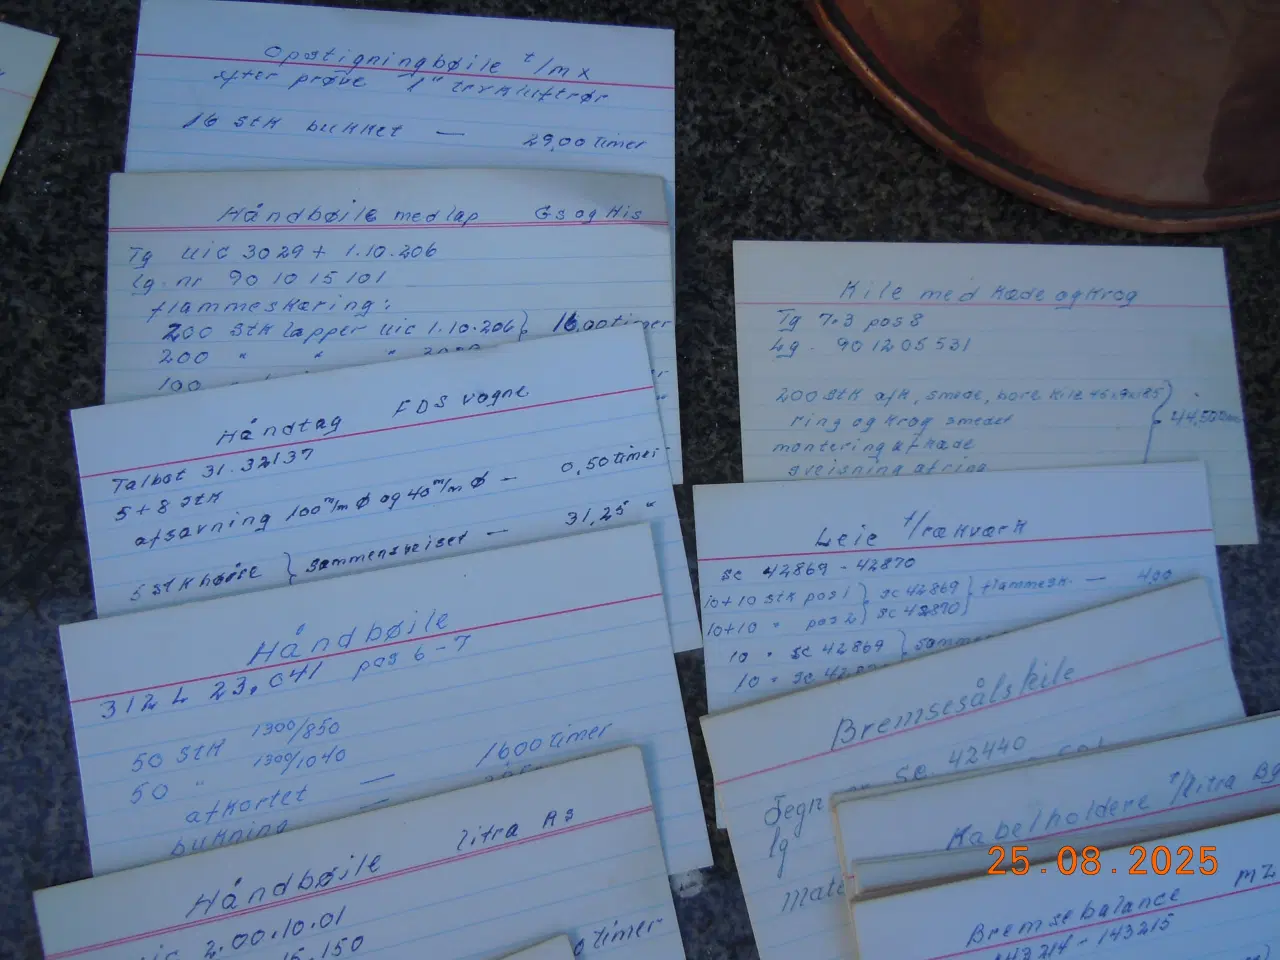 Opstigningbøile t/mx
efter prøve 1" trykluftrør
16 stk bukket — 29,00 timer
Håndbøile med lap Gs og His
Tg UIC 3029 + 1.10.206
Lg. nr 90 10 15 101
flammeskæring:
200 stk lapper UIC 1.10.206 } 16,00 timer
200 " " "
100
Håndtag FDS vogne
Talbot 31.32137
5+8 stk
afsavning 100 m/m ø og 40 m/m ø — 0,50 timer
5 stk høire } sammensveiset — 31,25 "
Håndbøile
312 L 23.041 pos 6-7
50 stk 1300/850
50 " 1300/1040
afkortet — 1600 timer
bukning
Håndbøile litra As
2.00.10.01
15.150
timer
Kile med kæde og krog
Tg 7.3 pos 8
Lg. 901205531
200 stk afk, smede, bore kile
ring og krog smedet
montering af kæde
sveisning af ring
Leie t/rækværk
sc 42869 - 42870
10+10 stk pos 1 } sc 42869 } flammesk. — 4,00
10+10 " pos 2 } sc 42870
10 " sc 42869
10 " sc
Bremsesålskile
sc. 42440
Tegn
lg
mate
Kabelholdere t/litra Bg
Bremsebalance MZ
143214 - 143215
25.08.2025